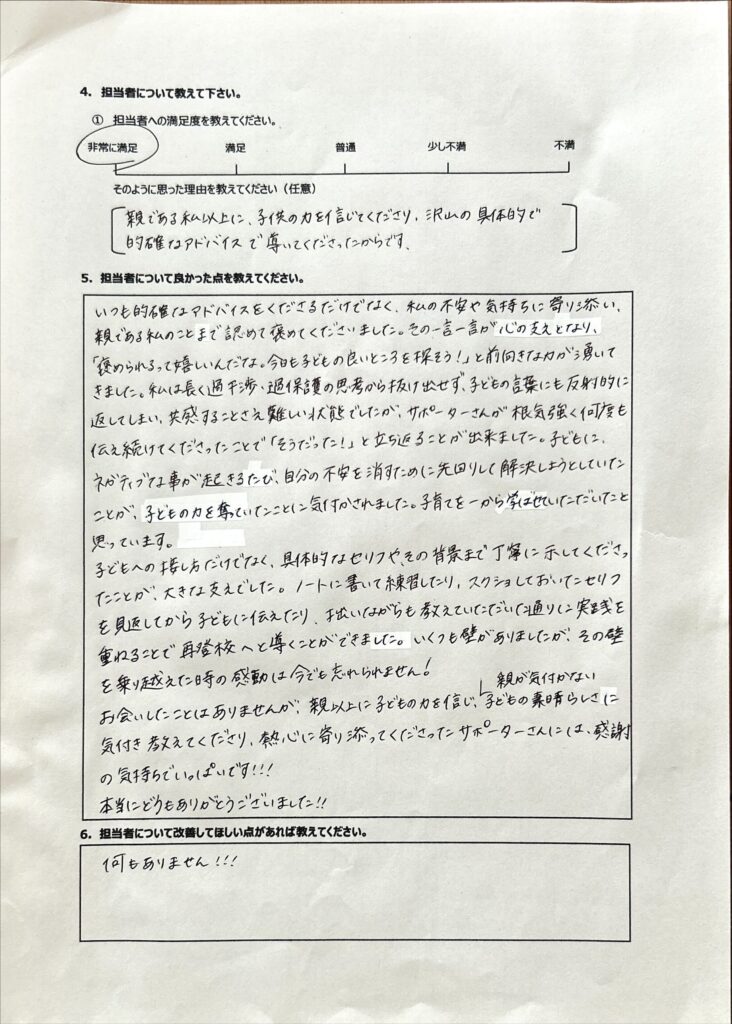 4. 担当者について教えて下さい。
① 担当者への満足度を教えてください。
非常に満足 満足 普通 少し不満 不満
そのように思った理由を教えてください（任意）
親である私以上に、子供の力を信じてくださり、沢山の具体的で
的確なアドバイスで導いてくださったからです。
5. 担当者について良かった点を教えてください。
いつも的確なアドバイスをくださるだけでなく、私の不安や気持ちに寄り添い、
親である私のことまで認めて褒めてくださいました。その一言一言が心の支えとなり、
「褒められるって嬉しいんだな。今日も子どもの良いところを探そう！」と前向きな力が湧いて
きました。私は長く過干渉・過保護の思考から抜け出せず、子どもの言葉にも反射的に
返してしまい、共感することさえ難しい状態でしたが、サポーターさんが根気強く何度も
伝え続けてくださったことで「そうだった！」と立ち返ることが出来ました。子どもに、
ネガティブな事が起きるたび、自分の不安を消すために先回りして解決しようとしていた
ことが、子どもの力を奪っていたことに気付かされました。子育てを一から学ばせていただいたと
思っています。
子どもへの接し方だけでなく、具体的なセリフや、その背景まで丁寧に示してくださっ
たことが、大きな支えでした。ノートに書いて練習したり、スクショしておいたセリフ
を見返してから子どもに伝えたり、拙いながらも教えていただいた通りに実践を
重ねることで再登校へと導くことができました。いくつも壁がありましたが、その壁
を乗り越えた時の感動は今でも忘れられません！
親が気付かない
お会いしたことはありませんが、親以上に子どもの力を信じ、子どもの素晴らしさに
気付き教えてくださり、熱心に寄り添ってくださったサポーターさんには、感謝
の気持ちでいっぱいです!!!
本当にどうもありがとうございました!!
6. 担当者について改善してほしい点があれば教えてください。
何もありません!!!